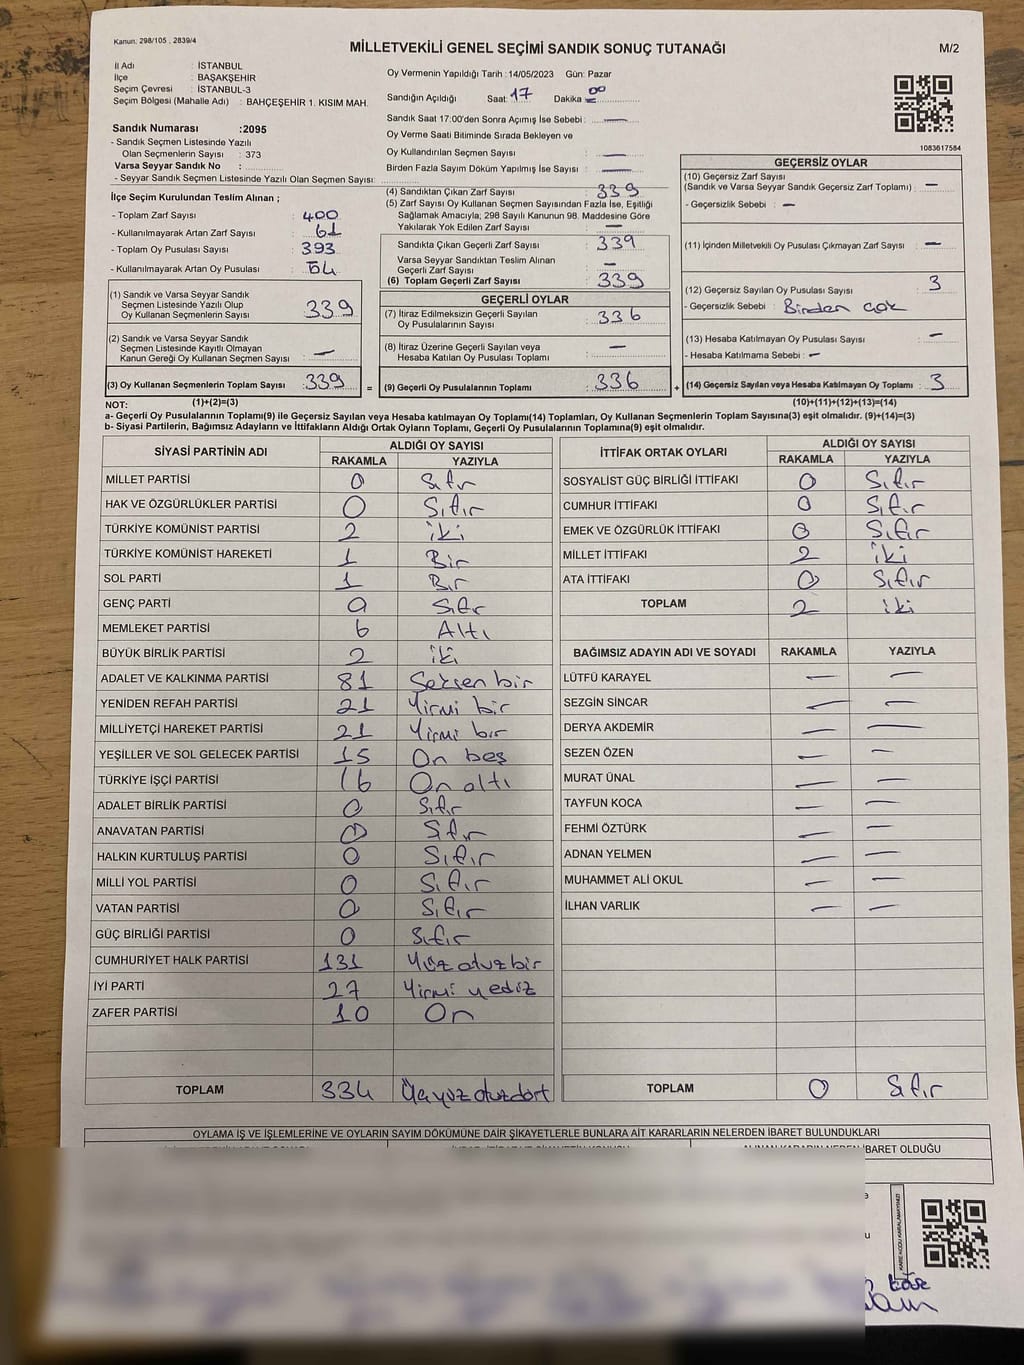 Kanun: 298/105 , 2839/4
MİLLETVEKİLİ GENEL SEÇİMİ SANDIK SONUÇ TUTANAĞI
M/2
İl Adı : İSTANBUL
İlçe : BAŞAKŞEHİR
Seçim Çevresi : İSTANBUL-3
Seçim Bölgesi (Mahalle Adı) : BAHÇEŞEHİR 1. KISIM MAH.
Sandık Numarası :2095
- Sandık Seçmen Listesinde Yazılı
Olan Seçmenlerin Sayısı : 373
Varsa Seyyar Sandık No :
- Seyyar Sandık Seçmen Listesinde Yazılı Olan Seçmen Sayısı:
İlçe Seçim Kurulundan Teslim Alınan ;
- Toplam Zarf Sayısı : 400
- Kullanılmayarak Artan Zarf Sayısı : 61
- Toplam Oy Pusulası Sayısı : 393
- Kullanılmayarak Artan Oy Pusulası : 54
(1) Sandık ve Varsa Seyyar Sandık
Seçmen Listesinde Yazılı Olup
Oy Kullanan Seçmenlerin Sayısı : 339
(2) Sandık ve Varsa Seyyar Sandık
Seçmen Listesinde Kayıtlı Olmayan
Kanun Gereği Oy Kullanan Seçmen Sayısı : —
(3) Oy Kullanan Seçmenlerin Toplam Sayısı : 339
(1)+(2)=(3)
Oy Vermenin Yapıldığı Tarih : 14/05/2023 Gün: Pazar
Sandığın Açıldığı Saat: 17 Dakika 00
Sandık Saat 17:00'den Sonra Açımış İse Sebebi : —
Oy Verme Saati Bitiminde Sırada Bekleyen ve
Oy Kullandırılan Seçmen Sayısı : —
Birden Fazla Sayım Döküm Yapılmış İse Sayısı : —
(4) Sandıktan Çıkan Zarf Sayısı : 339
(5) Zarf Sayısı Oy Kullanan Seçmenlerin Sayısından Fazla İse, Eşitliği
Sağlamak Amacıyla; 298 Sayılı Kanunun 98. Maddesine Göre
Yakılarak Yok Edilen Zarf Sayısı : —
Sandıkta Çıkan Geçerli Zarf Sayısı : 339
Varsa Seyyar Sandıktan Teslim Alınan
Geçerli Zarf Sayısı : —
(6) Toplam Geçerli Zarf Sayısı : 339
GEÇERLİ OYLAR
(7) İtiraz Edilmeksizin Geçerli Sayılan
Oy Pusulalarının Sayısı : 336
(8) İtiraz Üzerine Geçerli Sayılan veya
Hesaba Katılan Oy Pusulası Toplamı : —
= (9) Geçerli Oy Pusulalarının Toplamı : 336 +
1083617584
GEÇERSİZ OYLAR
(10) Geçersiz Zarf Sayısı
(Sandık ve Varsa Seyyar Sandık Geçersiz Zarf Toplamı) : —
- Geçersizlik Sebebi : —
(11) İçinden Milletvekili Oy Pusulası Çıkmayan Zarf Sayısı : —
(12) Geçersiz Sayılan Oy Pusulası Sayısı : 3
- Geçersizlik Sebebi : Birden çok
(13) Hesaba Katılmayan Oy Pusulası Sayısı : —
- Hesaba Katılmama Sebebi : —
(14) Geçersiz Sayılan veya Hesaba Katılmayan Oy Toplamı : 3
(10)+(11)+(12)+(13)=(14)
NOT:
a- Geçerli Oy Pusulalarının Toplamı(9) ile Geçersiz Sayılan veya Hesaba katılmayan Oy Toplamı(14) Toplamları, Oy Kullanan Seçmenlerin Toplam Sayısına(3) eşit olmalıdır. (9)+(14)=(3)
b- Siyasi Partilerin, Bağımsız Adayların ve İttifakların Aldığı Ortak Oyların Toplamı, Geçerli Oy Pusulalarının Toplamına(9) eşit olmalıdır.
SİYASİ PARTİNİN ADI ALDIĞI OY SAYISI
RAKAMLA YAZIYLA
MİLLET PARTİSİ 0 Sıfır
HAK VE ÖZGÜRLÜKLER PARTİSİ 0 Sıfır
TÜRKİYE KOMÜNİST PARTİSİ 2 iki
TÜRKİYE KOMÜNİST HAREKETİ 1 Bir
SOL PARTİ 1 Bir
GENÇ PARTİ 0 Sıfır
MEMLEKET PARTİSİ 6 Altı
BÜYÜK BİRLİK PARTİSİ 2 iki
ADALET VE KALKINMA PARTİSİ 81 Seksen bir
YENİDEN REFAH PARTİSİ 21 Yirmi bir
MİLLİYETÇİ HAREKET PARTİSİ 21 Yirmi bir
YEŞİLLER VE SOL GELECEK PARTİSİ 15 On beş
TÜRKİYE İŞÇİ PARTİSİ 16 On altı
ADALET BİRLİK PARTİSİ 0 Sıfır
ANAVATAN PARTİSİ 0 Sıfır
HALKIN KURTULUŞ PARTİSİ 0 Sıfır
MİLLİ YOL PARTİSİ 0 Sıfır
VATAN PARTİSİ 0 Sıfır
GÜÇ BİRLİĞİ PARTİSİ 0 Sıfır
CUMHURİYET HALK PARTİSİ 131 Yüz otuz bir
İYİ PARTİ 27 Yirmi yediz
ZAFER PARTİSİ 10 On
TOPLAM 334 Üçyüz otuzdört
İTTİFAK ORTAK OYLARI ALDIĞI OY SAYISI
RAKAMLA YAZIYLA
SOSYALİST GÜÇ BİRLİĞİ İTTİFAKI 0 Sıfır
CUMHUR İTTİFAKI 0 Sıfır
EMEK VE ÖZGÜRLÜK İTTİFAKI 0 Sıfır
MİLLET İTTİFAKI 2 iki
ATA İTTİFAKI 0 Sıfır
TOPLAM 2 iki
BAĞIMSIZ ADAYIN ADI VE SOYADI RAKAMLA YAZIYLA
LÜTFÜ KARAYEL — —
SEZGİN SİNCAR — —
DERYA AKDEMİR — —
SEZEN ÖZEN — —
MURAT ÜNAL — —
TAYFUN KOCA — —
FEHMİ ÖZTÜRK — —
ADNAN YELMEN — —
MUHAMMET ALİ OKUL — —
İLHAN VARLIK — —
TOPLAM 0 Sıfır
OYLAMA İŞ VE İŞLEMLERİNE VE OYLARIN SAYIM DÖKÜMÜNE DAİR ŞİKAYETLERLE BUNLARA AİT KARARLARIN NELERDEN İBARET BULUNDUKLARI
ALINAN KARARIN NEDEN İBARET OLDUĞU
KAREKODU KARALAMAYINIZ!